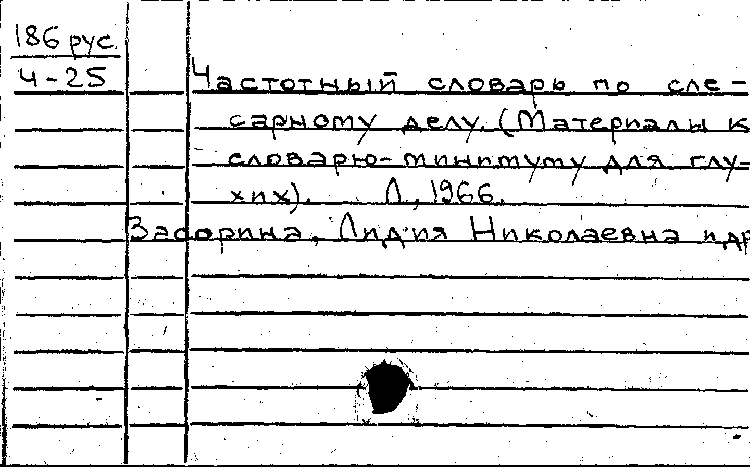 186 рус.
Ч-25
Частотный словарь по сле-
сарному делу. (Материалы к
словарю-минимуму для глу-
хих). Л., 1966.
Засорина, Лидия Николаевна и др